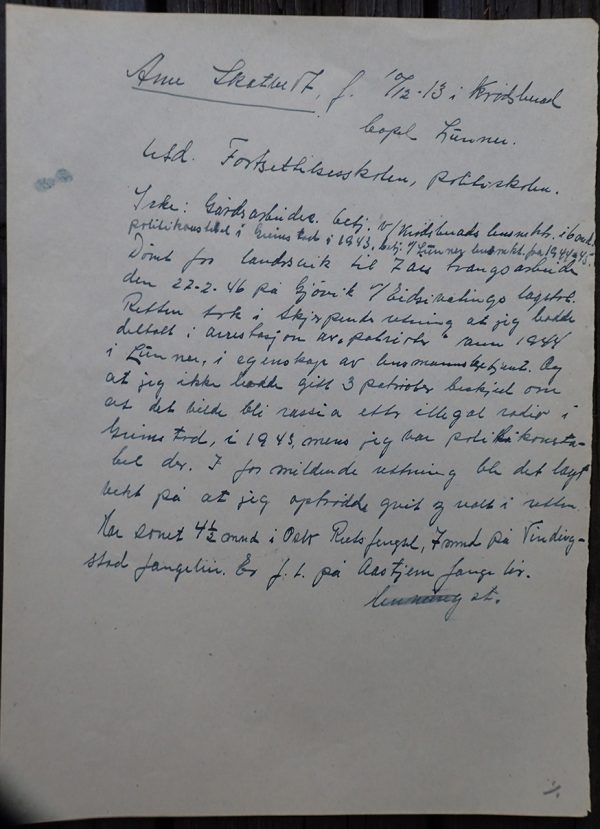 Arne Skatvedt, f. 10/12-13 i Krødsherad
bopel Lunner.
Utd. Fortsettelsesskolen, politiskolen.
Yrke: Gårdsarbeider. betj. v/ Krødsherads lensmktr. i 6 mnd.
politikonstabel i Grimstad i 1943, betj. v/ Lunner lensmkt. fra 1944-45.
Dømt for landssvik til 7 års tvangsarbeide
den 22-2-46 på Gjøvik v/ Eidsivatings lagstol.
Retten tok i skjerpende retning at jeg hadde
deltatt i arrestasjon av „patrioter" i 1944
i Lunner, i egenskap av lensmannsbetjent. Og
at jeg ikke hadde gitt 3 patrioter beskjed om
at det vilde bli rassia etter illegal radio i
Grimstad, i 1943, mens jeg var politikonsta-
bel der. I formildende retning ble det lagt
vekt på at jeg optrådde greit og rolt i retten.
Har sonet 4½ mnd i Oslo Kretsfengsel, 7 mnd på Vinding-
stad fangeleir. Er f. t. på Aastjern fangeleir.